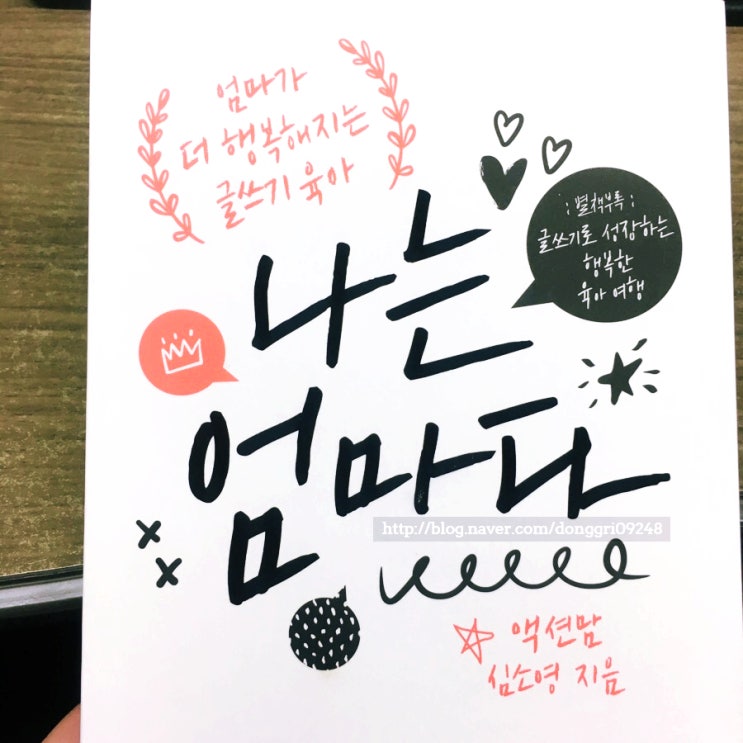 엄마가
더 행복해지는
글쓰기 육아
: 별책부록 :
글쓰기로 성장하는
행복한
육아 여행
나는
엄마다
http://blog.naver.com/donggri09248
액션맘
심소영 지음